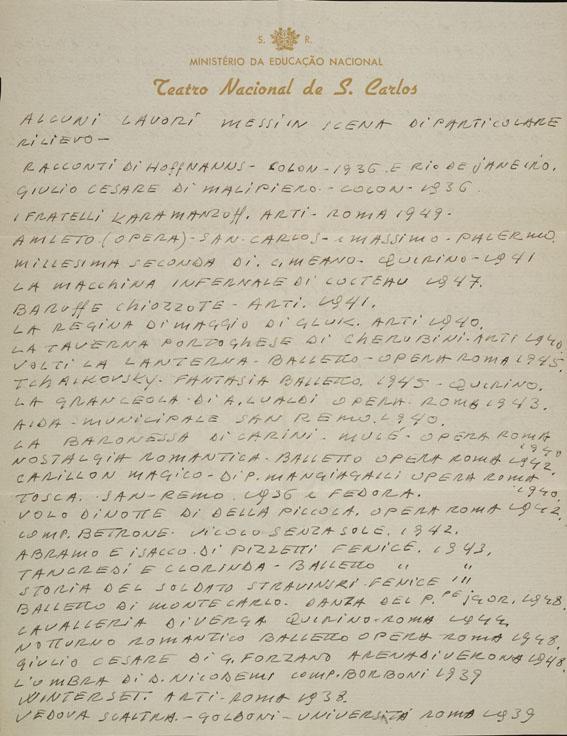 S. R.
MINISTÉRIO DA EDUCAÇÃO NACIONAL
Teatro Nacional de S. Carlos
ALCUNI LAVORI MESSI IN SCENA DI PARTICOLARE
RILIEVO -
RACCONTI DI HOFFNANNS - COLON - 1936. E RIO DE JANEIRO.
GIULIO CESARE DI MALIPIERO. - COLON - 1936.
I FRATELLI KARAMANZOFF. ARTI - ROMA 1949.
AMLETO (OPERA) - SAN-CARLOS - MASSIMO - PALERMO.
MILLESIMA SECONDA DI. G. MEANO - QUIRINO - 1941
LA MACCHINA INFERNALE DI COCTEAU 1947.
BARUFFE CHIOZZOTE - ARTI. 1941.
LA REGINA DI MAGGIO DI GLUK. ARTI 1940.
LA TAVERNA PORTOGHESE DI CHERUBINI. ARTI 1940
VOLTI LA LANTERNA - BALLETTO - OPERA ROMA 1945.
TCHAIKOVSKY. FANTASIA BALLETTO. 1945 - QUIRINO.
LA GRANCEOLA. DI A. LUALDI OPERA. ROMA 1943.
AIDA - MUNICIPALE SAN REMO. 1940.
LA BARONESSA DI CARINI. MULÉ. OPERA ROMA 1940
NOSTALGIA ROMANTICA. BALLETTO OPERA ROMA 1942.
CARILLON MAGICO - DI P. MANGIAGALLI OPERA ROMA 1940.
TOSCA. SAN-REMO. 1936 E FEDORA.
VOLO DI NOTTE DI DELLA PICCOLA. OPERA ROMA 1942.
COMP. BETRONE. VICOLO SENZA SOLE. 1942.
ABRAMO E ISACCO. DI PIZZETTI FENICE. 1943.
TANCREDI E CLORINDA - BALLETTO " "
STORIA DEL SOLDATO STRAVINSKI. FENICE "
BALLETTO DI MONTECARLO. DANZA DEL P.PE IGOR. 1948.
CAVALLERIA DI VERGA QUIRINO - ROMA
NOTTURNO ROMANTICO BALLETTO OPERA ROMA 1948.
GIULIO CESARE DI G. FORZANO ARENA DI VERONA 1948.
L'OMBRA DI D. NICODEMI COMP. BORBONI 1939
WINTERSET. ARTI - ROMA 1938.
VEDOVA SCALTRA. - GOLDONI - UNIVERSITÁ ROMA 1939